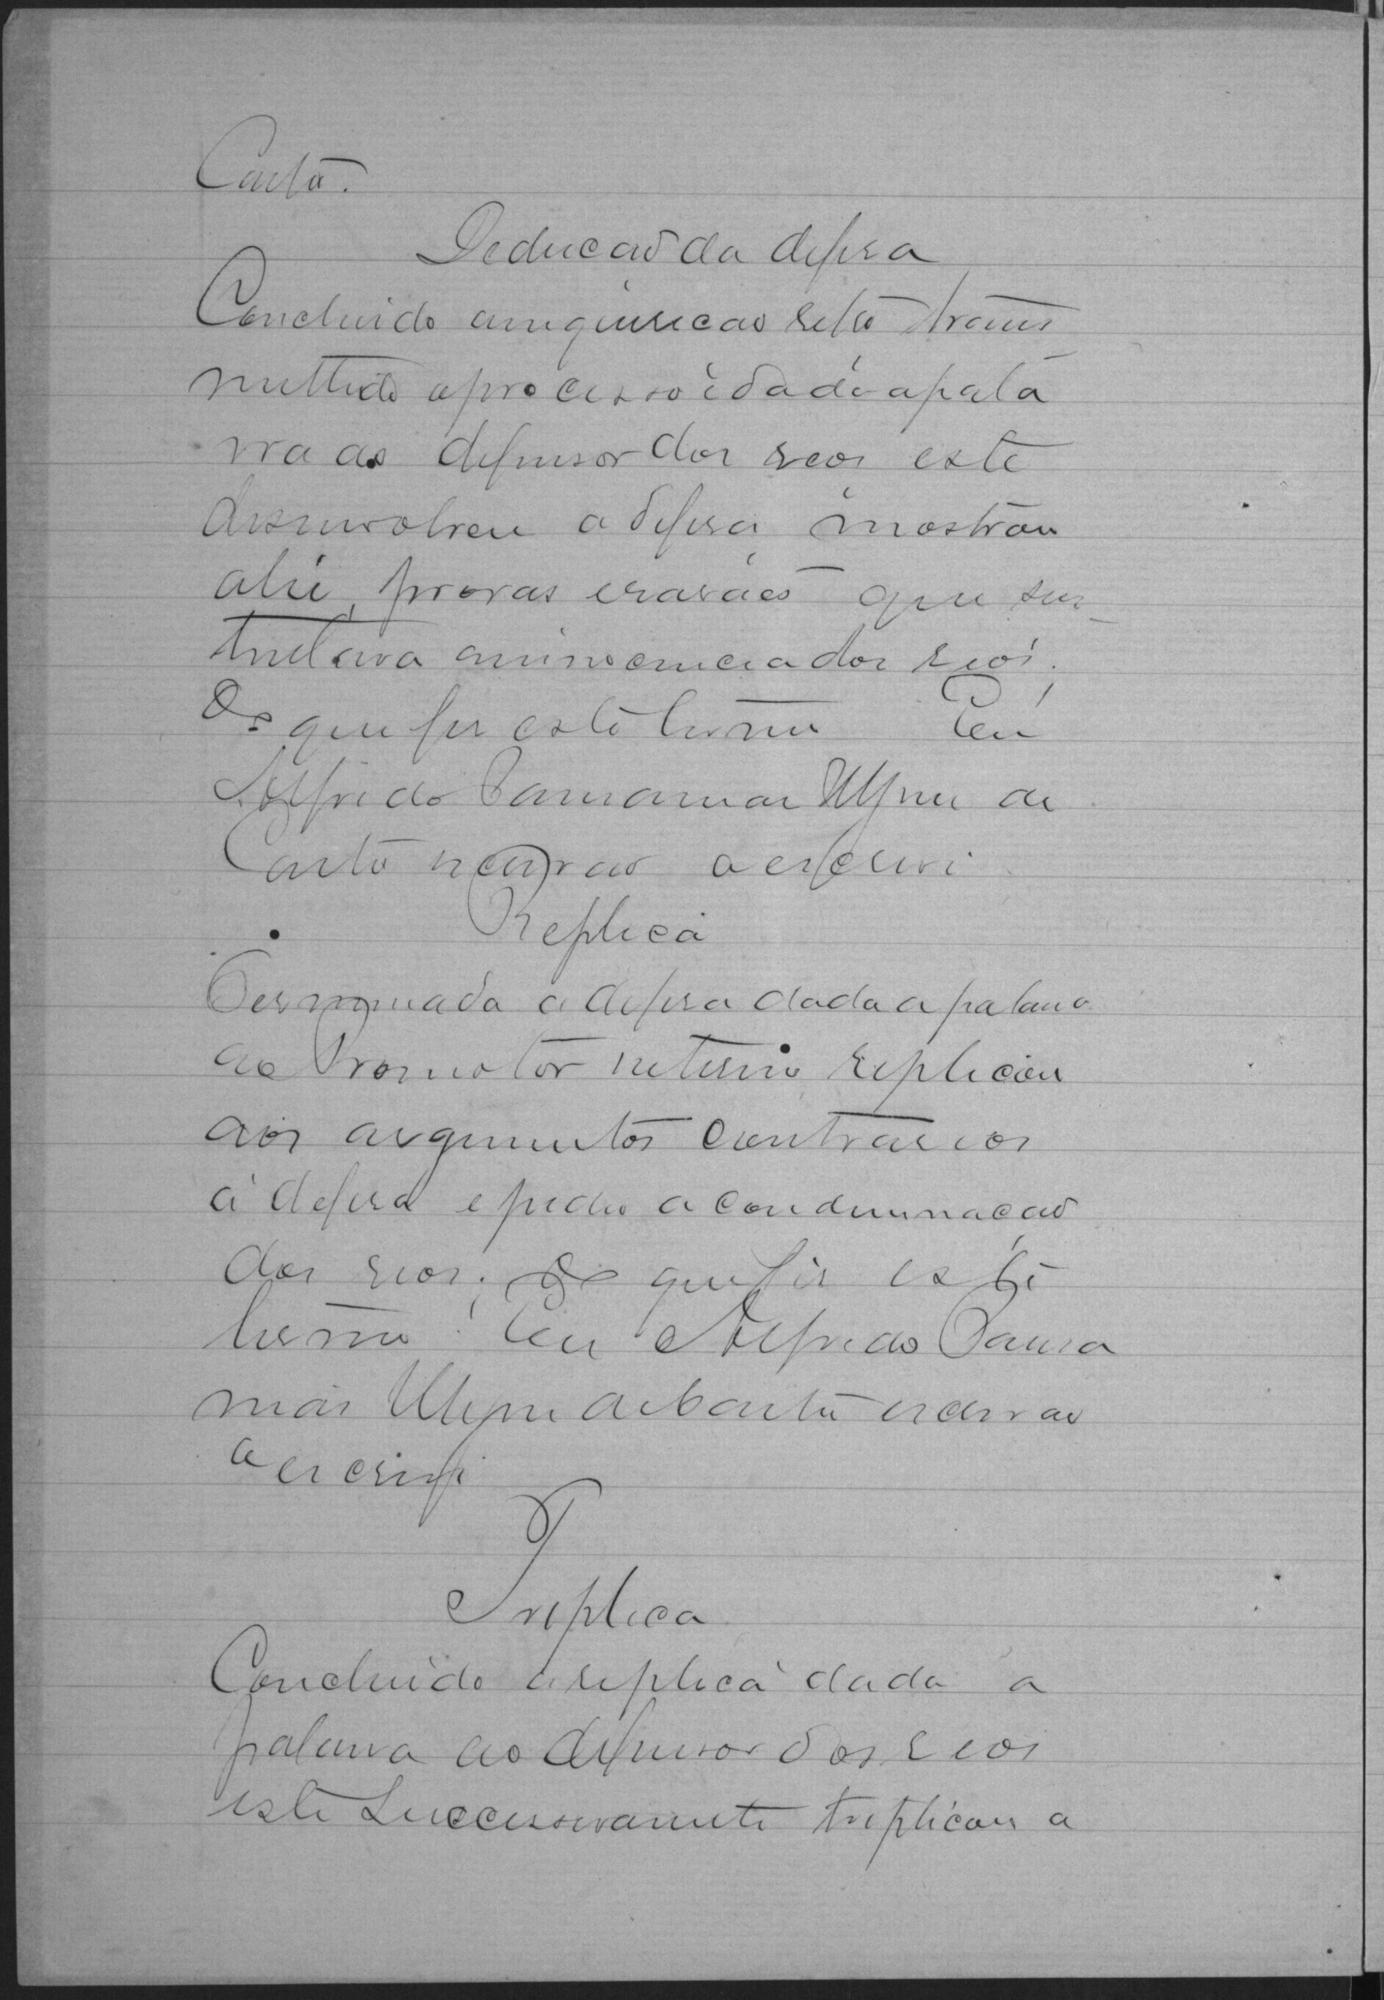 Canto.
Deducção da defesa
Concluido a inquirição retro trans
mittido o processo e dada a pala
vra ao defensor dos reos este
desenvolveu a defesa mostrou
alei, provas e rasões que sus
tentava a innocencia dos reos.
Do que fis este termo Eu
Alfredo de
Canto escrivão a escrevi
Replica
Terminada a defesa dada a palavra
ao Promotor interino replicou
aos argumentos contrarios
á defesa e pedio a condemnação
dos reos; Do que fis este
termo. Eu Alfredo
de Canto escrivão
a escrevi
Treplica
Concluido a replica dada a
palavra ao defensor dos reos
este successivamente treplicou a